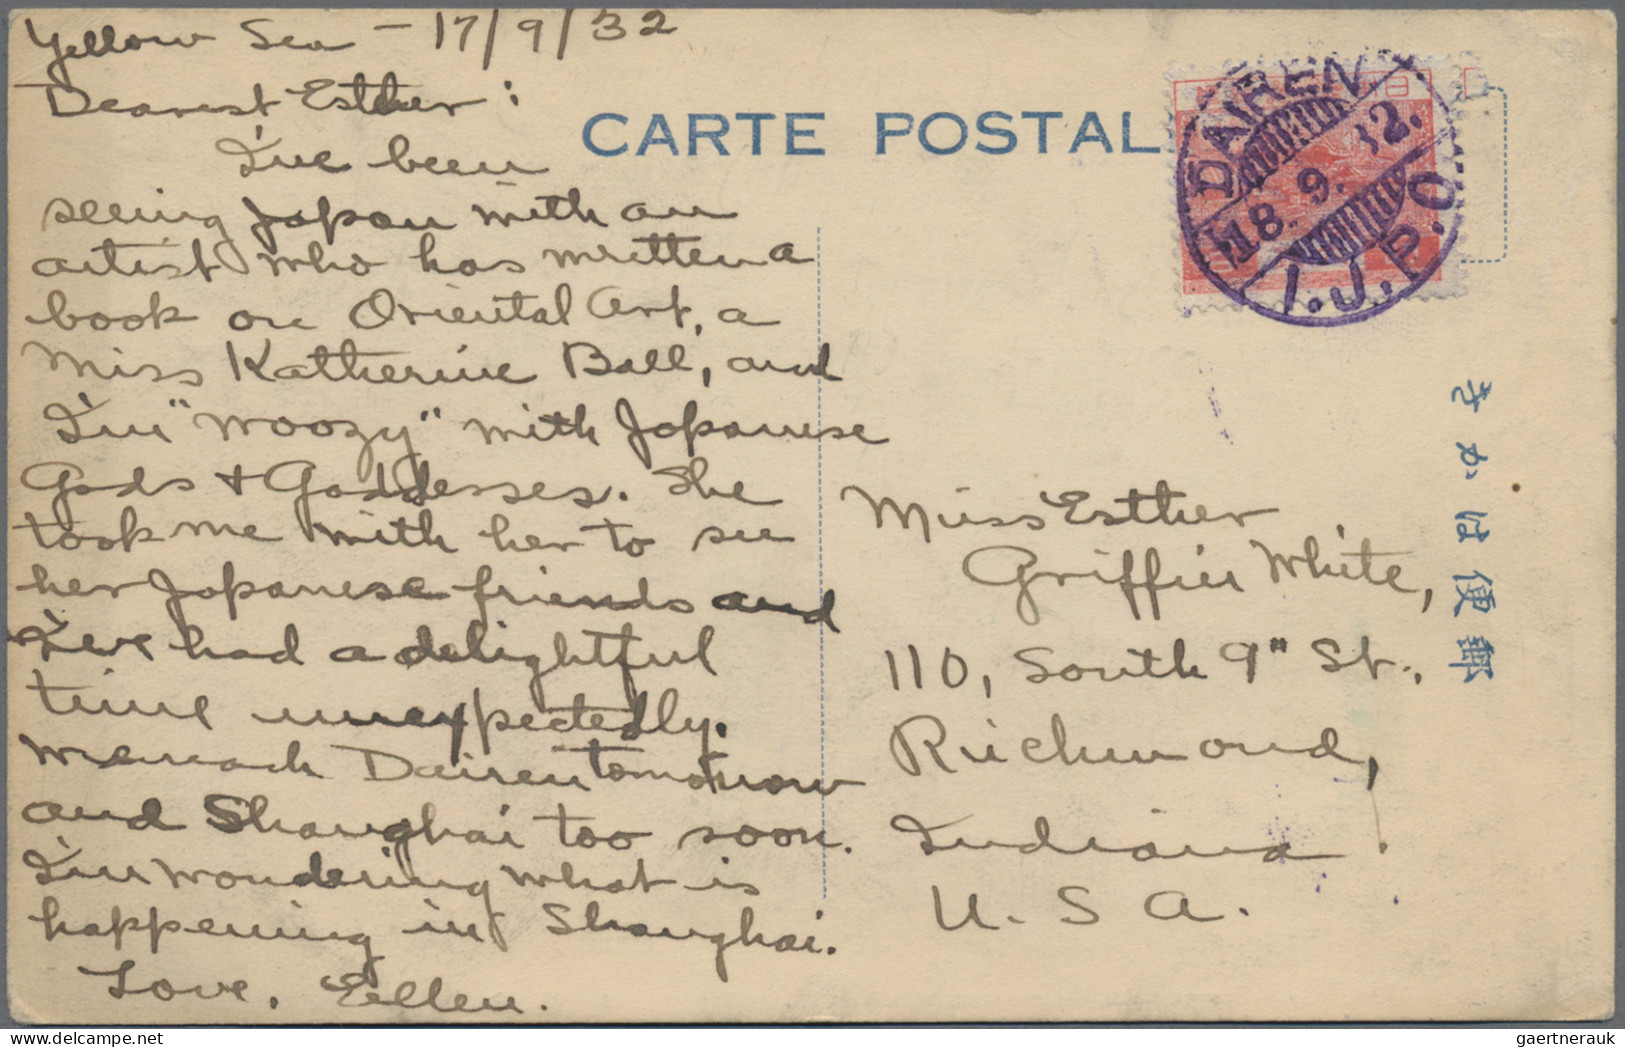 Yellow Sea - 17/9/32
Dearest Esther:
I've been
seeing Japan with an
artist who has written a
book on Oriental Art, a
Miss Katherine Ball, and
I'm "woozy" with Japanese
Gods + Goddesses. She
took me with her to see
her Japanese friends and
I've had a delightful
time unexpectedly.
We reach Dairen tomorrow
and Shanghai too soon.
I'm wondering what is
happening in Shanghai.
Love, Ellen.
CARTE POSTAL
DAIREN
18.9.32.
I.J.P.O.
Miss Esther
Griffin White,
110, South 9" St.,
Richmond,
Indiana
U. S. A.
きかは便郵
gaertnerauk